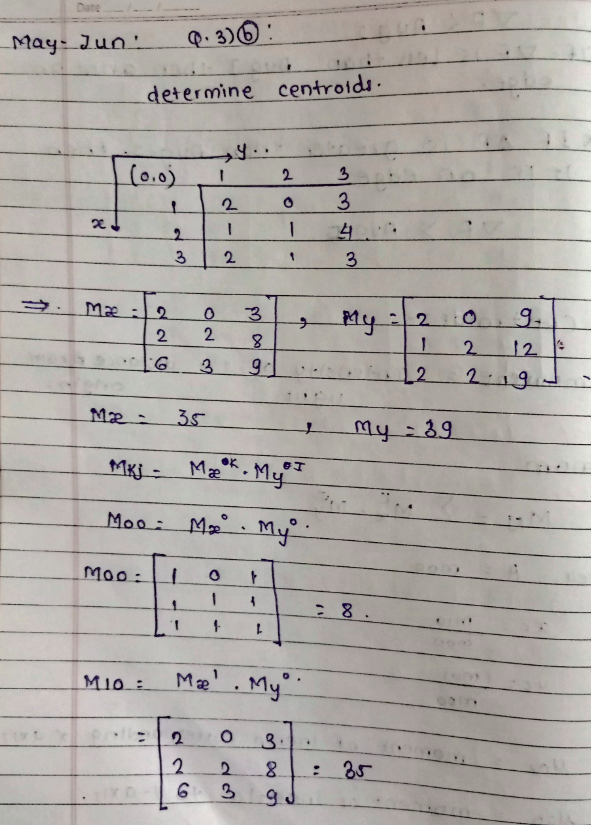 Date
May-Jun: Q.3)(b):
determine centroids.
y..
(0,0) 1 2 3
1 2 0 3
x 2 1 1 4
3 2 1 3
⇒. Mx = [2 0 3 , My = [2 0 9
2 2 8 1 2 12
6 3 9] 2 2 9]
Mx = 35 , My = 39
MKj = Mx^K . My^J
M00 = Mx⁰ . My⁰.
M00 = [1 0 1
1 1 1 = 8.
1 1 1]
M10 = Mx¹ . My⁰.
= [2 0 3
2 2 8 = 35
6 3 9]